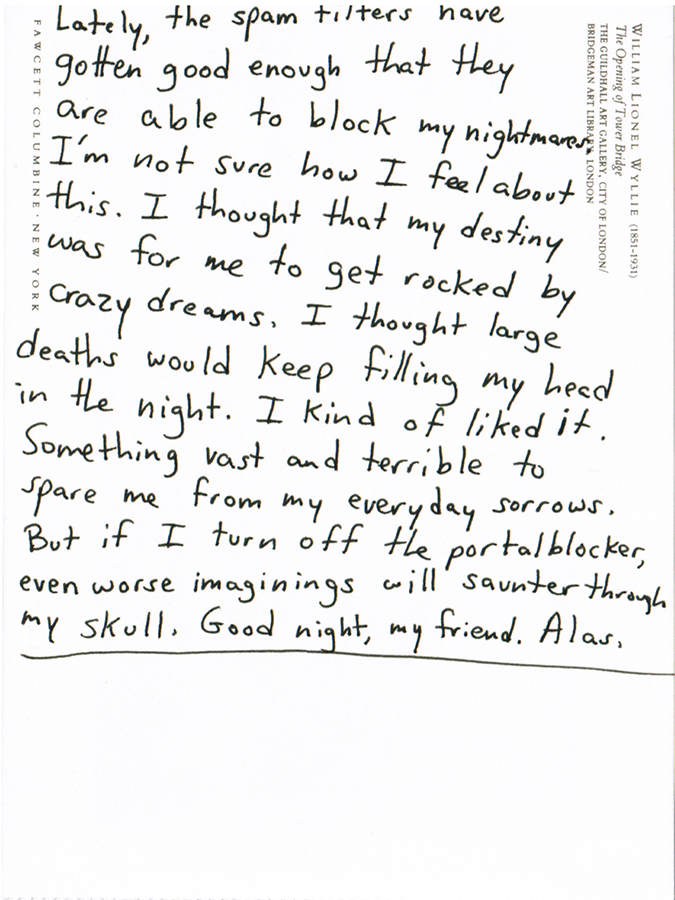 Lately, the spam filters have
gotten good enough that they
are able to block my nightmares.
I'm not sure how I feel about
this. I thought that my destiny
was for me to get rocked by
crazy dreams. I thought large
deaths would keep filling my head
in the night. I kind of liked it.
Something vast and terrible to
spare me from my everyday sorrows.
But if I turn off the portalblocker,
even worse imaginings will saunter through
my skull. Good night, my friend. Alas.
FAWCETT COLUMBINE · NEW YORK
WILLIAM LIONEL WYLLIE (1851-1931)
The Opening of Tower Bridge
THE GUILDHALL ART GALLERY, CITY OF LONDON/
BRIDGEMAN ART LIBRARY, LONDON